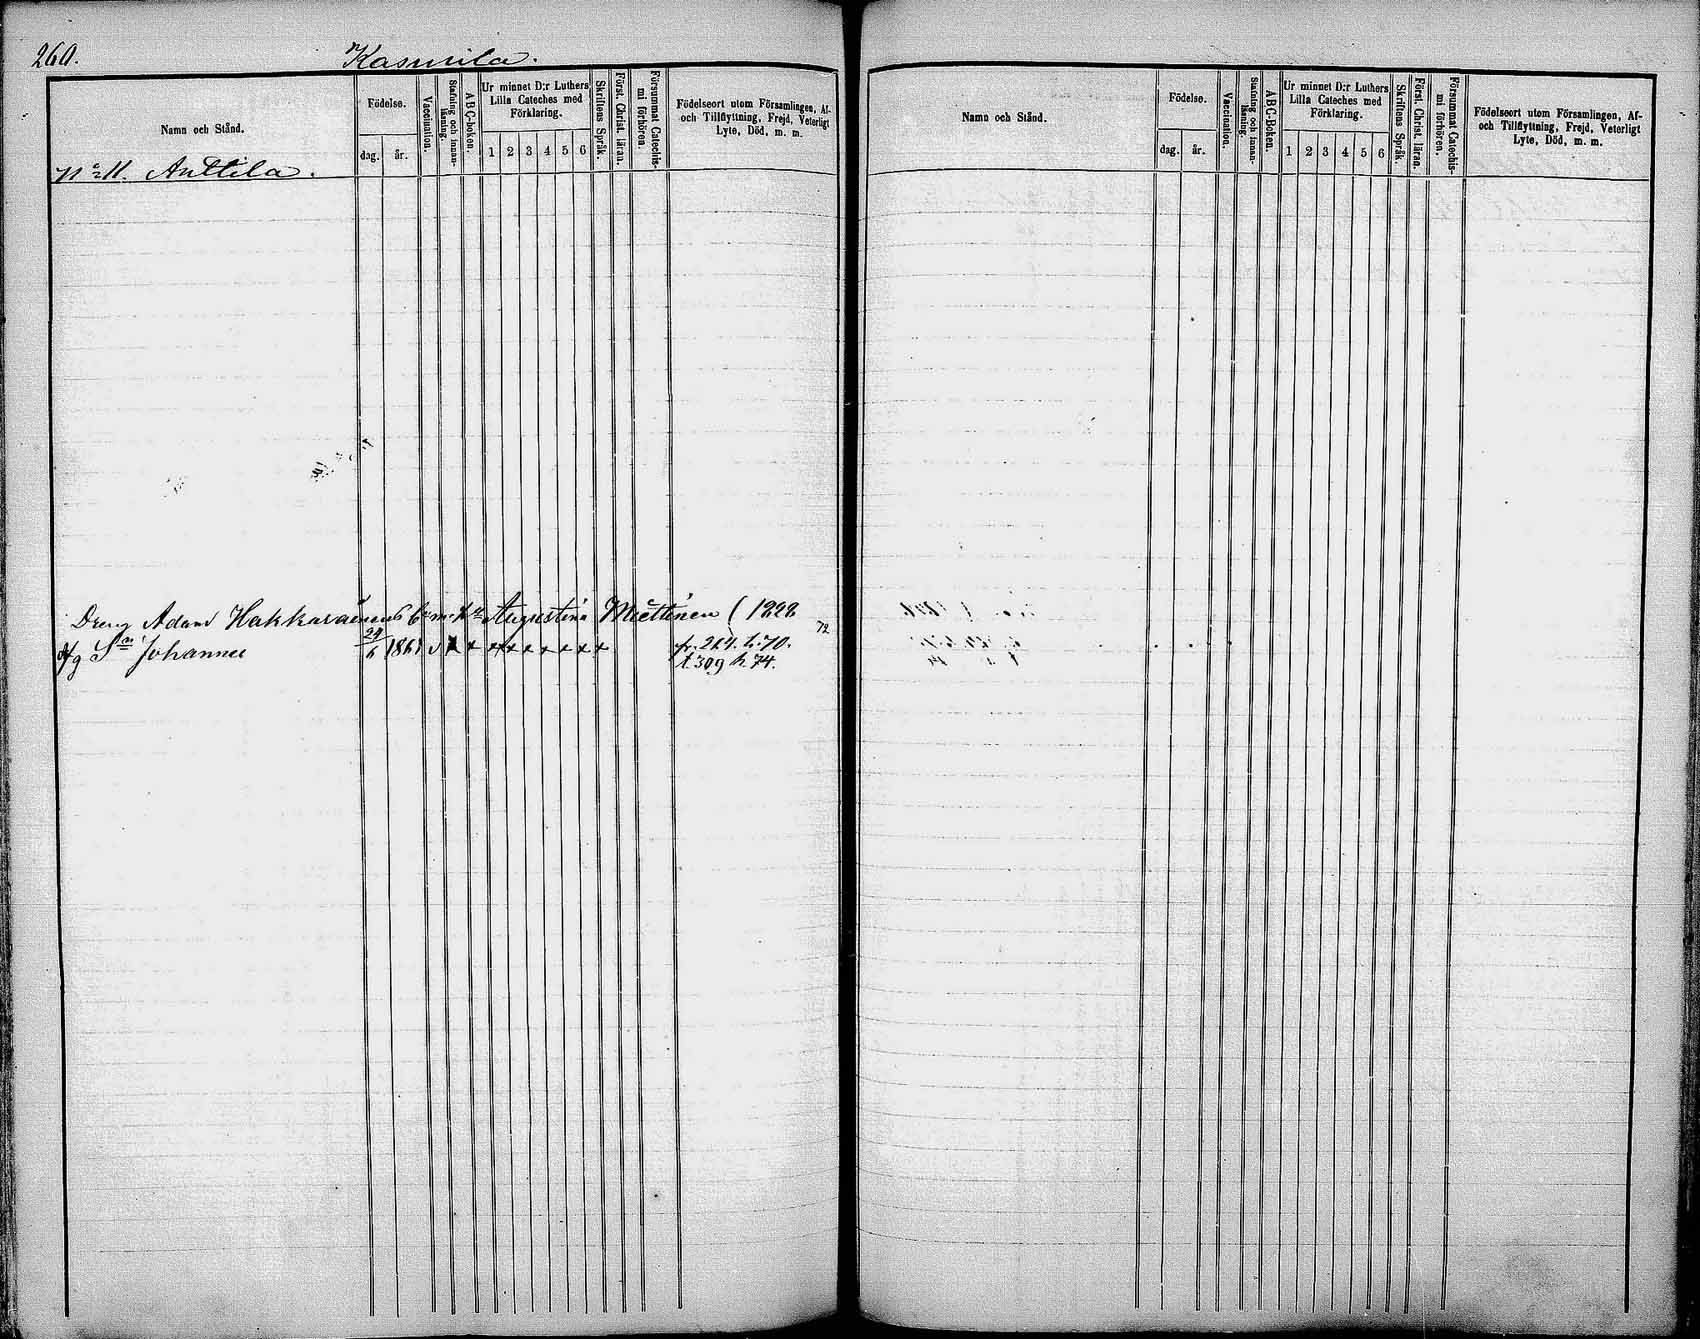 260.
Kasurila.
Namn och Stånd.
Födelse.
dag.
år.
Vaccination.
Stafning och innan-
läsning.
ABC-boken.
Ur minnet D:r Luthers
Lilla Cateches med
Förklaring.
1 2 3 4 5 6
Skriftens Språk.
Först. Christ. läran.
Försummat Catechis-
mi förhören.
Födelseort utom Församlingen, Af-
och Tillflyttning, Frejd, Veterligt
Lyte, Död, m. m.
Anttila.
Dreng Adam Hakkarainens Augustina Miettinen
Johannes 29/6 fr. 264. h. 70.
t. 309 h. 74.
72
Namn och Stånd.
Födelse.
dag.
år.
Vaccination.
Stafning och innan-
läsning.
ABC-Boken.
Ur minnet D:r Luthers
Lilla Cateches med
Förklaring.
1 2 3 4 5 6
Skriftens Språk.
Först. Christ. läran.
Försummat Catechis-
mi förhören.
Födelseort utom Församlingen, Af-
och Tillflyttning, Frejd, Veterligt
Lyte, Död, m. m.